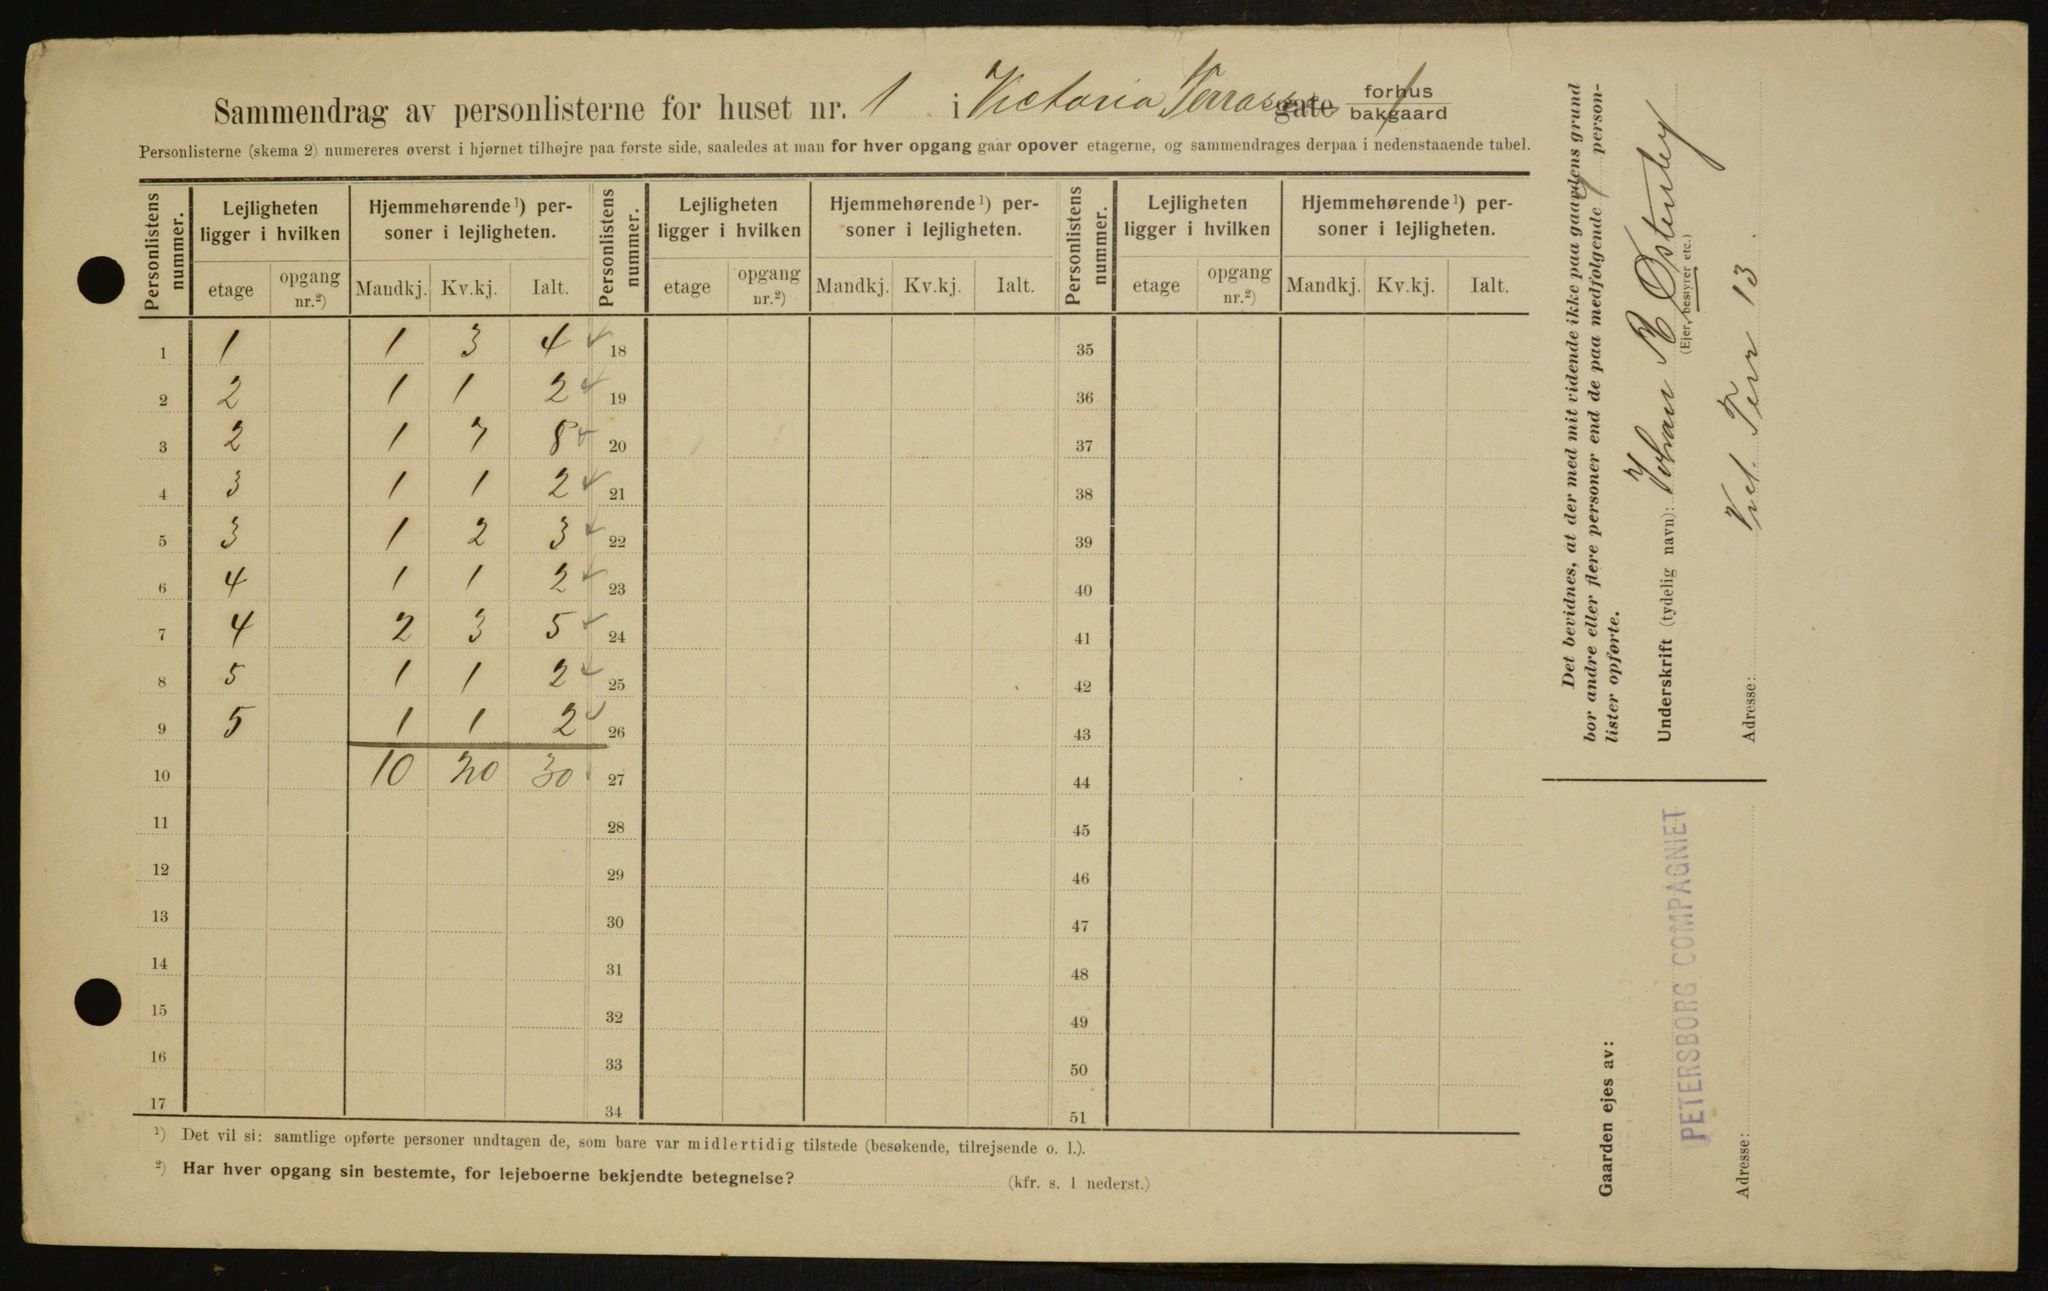 Sammendrag av personlisterne for huset nr. 1 i Victoria Terrasse gate forhus
bakgaard
Personlisterne (skema 2) numereres øverst i hjørnet tilhøjre paa første side, saaledes at man for hver opgang gaar opover etagerne, og sammendrages derpaa i nedenstaaende tabel.
Personlistens nummer. Lejligheten ligger i hvilken Hjemmehørende¹) personer i lejligheten. Personlistens nummer. Lejligheten ligger i hvilken Hjemmehørende¹) personer i lejligheten. Personlistens nummer. Lejligheten ligger i hvilken Hjemmehørende¹) personer i lejligheten.
etage opgang nr.²) Mandkj. Kv.kj. Ialt. etage opgang nr.²) Mandkj. Kv.kj. Ialt. etage opgang nr.²) Mandkj. Kv.kj. Ialt.
1 1 1 3 4 18 35
2 2 1 1 2 19 36
3 2 1 7 8 20 37
4 3 1 1 2 21 38
5 3 1 2 3 22 39
6 4 1 1 2 23 40
7 4 2 3 5 24 41
8 5 1 1 2 25 42
9 5 1 1 2 26 43
10 10 20 30 27 44
11 28 45
12 29 46
13 30 47
14 31 48
15 32 49
16 33 50
17 34 51
¹) Det vil si: samtlige opførte personer undtagen de, som bare var midlertidig tilstede (besøkende, tilrejsende o. l.).
²) Har hver opgang sin bestemte, for lejeboerne bekjendte betegnelse? (kfr. s. 1 nederst.)
Det bevidnes, at der med mit vidende ikke paa gaardens grund
bor andre eller flere personer end de paa medfølgende person-
lister opførte.
Underskrift (tydelig navn): Johan R Østenby
(Ejer, bestyrer etc.)
Adresse: Vict. Terr 13.
Gaarden ejes av:
PETERSBORG COMPAGNIET
Adresse: